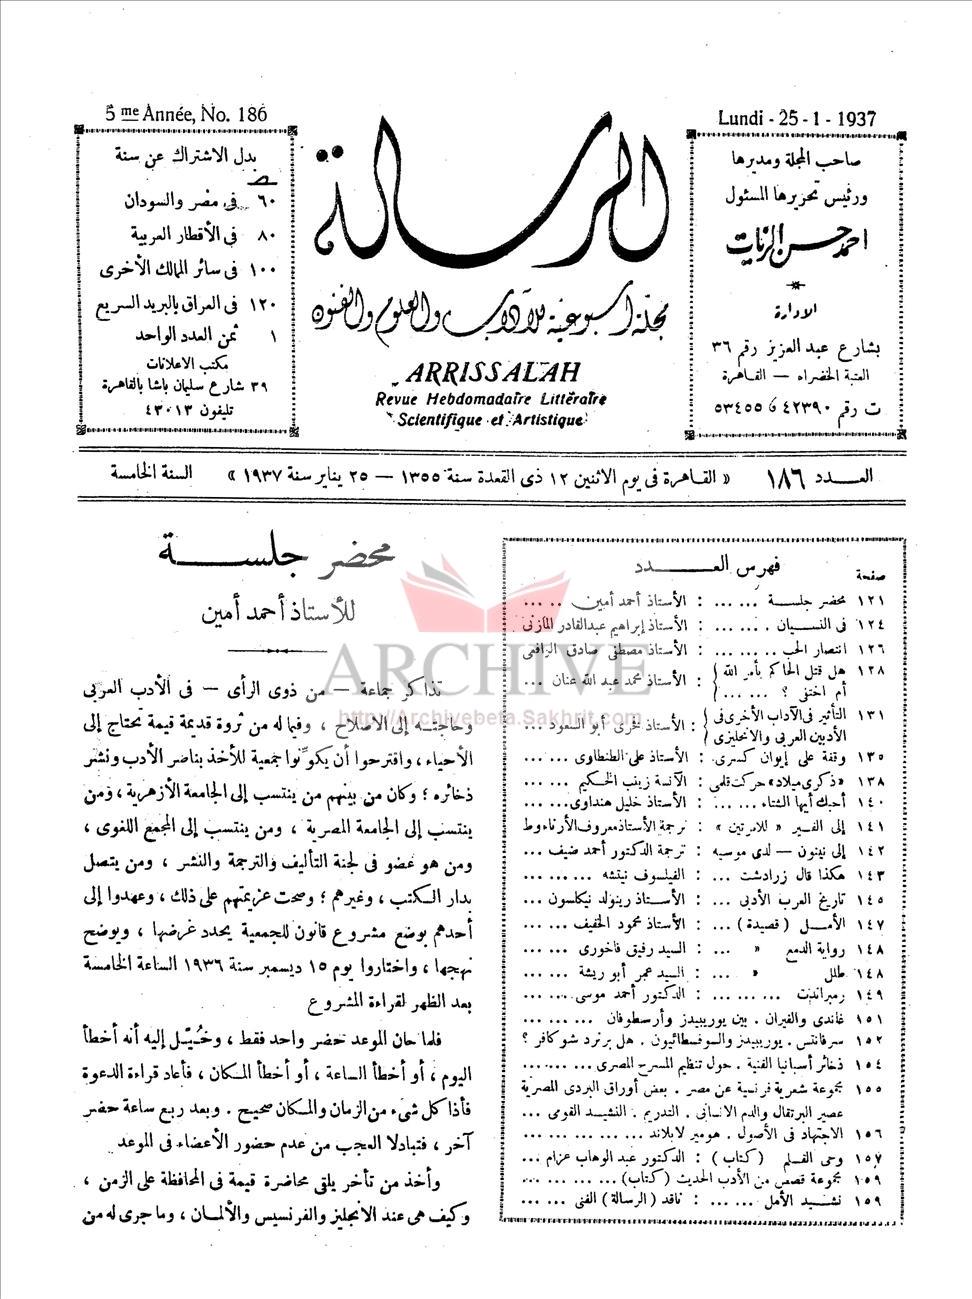 5me Année, No. 186
بدل الاشتراك عن سنة
ص
٦٠ في مصر والسودان
٨٠ في الأقطار العربية
١٠٠ في سائر الممالك الأخرى
١٢٠ في العراق بالبريد السريع
١ ثمن العدد الواحد
مكتب الاعلانات
٣٩ شارع سليمان باشا بالقاهرة
تليفون ٤٣٠١٣
الرسالة
مجلة أسبوعية للآداب والعلوم والفنون
ARRISSALAH
Revue Hebdomadaire Littéraire
Scientifique et Artistique
Lundi - 25 - 1 - 1937
صاحب المجلة ومديرها
ورئيس تحريرها المسئول
احمد حسن الزيات
الادارة
بشارع عبد العزيز رقم ٣٦
العتبة الخضراء — القاهرة
ت رقم ٤٢٣٩٠ و ٥٣٤٥٥
العـــدد ١٨٦ « القاهرة في يوم الاثنين ١٢ ذي القعدة سنة ١٣٥٥ — ٢٥ يناير سنة ١٩٣٧ » السنة الخامسة
فهرس العـــدد
صفحة
١٢١ محضر جلسة ... ... : الأستاذ أحمد أمين ... ...
١٢٤ في النسيان . ... ... : الأستاذ إبراهيم عبد القادر المازني
١٢٦ انتصار الحب .. ... ... : الأستاذ مصطفى صادق الرافعي
١٢٨ هل قتل الحاكم بأمر الله أم اختفى ؟ ... ... : الأستاذ محمد عبد الله عنان ...
١٣١ التأثير في الآداب الأخرى في الأدبين العربي والانجليزي : الأستاذ فخري أبو السعود ...
١٣٥ وقفة على إيوان كسرى : الأستاذ علي الطنطاوي ... ...
١٣٨ «ذكرى ميلاد» حركت قلمي : الآنسة زينب الحكيم ... ...
١٤٠ أحبك أيها الشتاء ... ... : الأستاذ خليل هنداوي ... ...
١٤١ إلى الفير « للامرتين » : ترجمة الأستاذ معروف الأرناءوط
١٤٢ إلى نينون — لدى موسيه : ترجمة الدكتور أحمد ضيف ...
١٤٣ هكذا قال زرادشت ... : الفيلسوف نيتشه ... ... ...
١٤٥ تاريخ العرب الأدبي ... : الأستاذ رينولد نيكلسون ...
١٤٧ الأمـــل ( قصيدة ) ... : الأستاذ محمود الخفيف ... ...
١٤٨ رواية الدمع » ... : السيد رفيق فاخوري ... ...
١٤٨ طلل » ... : السيد عمر أبو ريشة ... ...
١٤٩ رمبراندت ... ... ... : الدكتور أحمد موسى ... ...
١٥١ غاندي والفيران . بين يوريبيدز وأرسطوفان ... ... ...
١٥٢ سرفانتس . يوريبيدز والسوفسطائيون . هل برنرد شو كافر ؟
١٥٤ ذخائر أسبانيا الفنية . حول تنظيم المسرح المصري ... ...
١٥٥ مجموعة شعرية فرنسية عن مصر . بعض أوراق البردي المصرية
عصير البرتقال والدم الانساني . التدريم . النشيد القومي ...
١٥٦ الاجتهاد في الأصول . هومير لابلاند ... ... ... ...
١٥٧ وحي القلم ( كتاب ) : الدكتور عبد الوهاب عزام ...
١٥٩ مجموعة قصص من الأدب الحديث (كتاب) ... ... ...
١٥٩ نشـــيد الأمل ... ... : ناقد ( الرسالة ) الفني ... ...
محضر جلســـة
للأستاذ أحمد أمين
تذاكر جماعة — من ذوي الرأي — في الأدب العربي
وحاجته إلى الاصلاح ، وفيما له من ثروة قديمة قيمة يحتاج إلى
الأحياء ، واقترحوا أن يكوّنوا جمعية للأخذ بناصر الأدب ونشر
ذخائره ؛ وكان من بينهم من ينتسب إلى الجامعة الأزهرية ، ومن
ينتسب إلى الجامعة المصرية ، ومن ينتسب إلى المجمع اللغوي ،
ومن هو عضو في لجنة التأليف والترجمة والنشر ، ومن يتصل
بدار الكتب ، وغيرهم ؛ وصحت عزيمتهم على ذلك ، وعهدوا إلى
أحدهم بوضع مشروع قانون للجمعية يحدد غرضها ، ويوضح
نهجها ، واختاروا يوم ١٥ ديسمبر سنة ١٩٣٦ الساعة الخامسة
بعد الظهر لقراءة المشروع
فلما حان الموعد حضر واحد فقط ، وخُيّل إليه أنه أخطأ
اليوم ، أو أخطأ الساعة ، أو أخطأ المكان ، فأعاد قراءة الدعوة
فاذا كل شيء من الزمان والمكان صحيح . وبعد ربع ساعة حضر
آخر ، فتبادلا العجب من عدم حضور الأعضاء في الموعد
وأخذ من تأخر يلقي محاضرة قيمة في المحافظة على الزمن ،
وكيف هي عند الانجليز والفرنسيس والألمان ، وما جرى له من
ARCHIVE
http://Archivebeta.Sakhrit.com